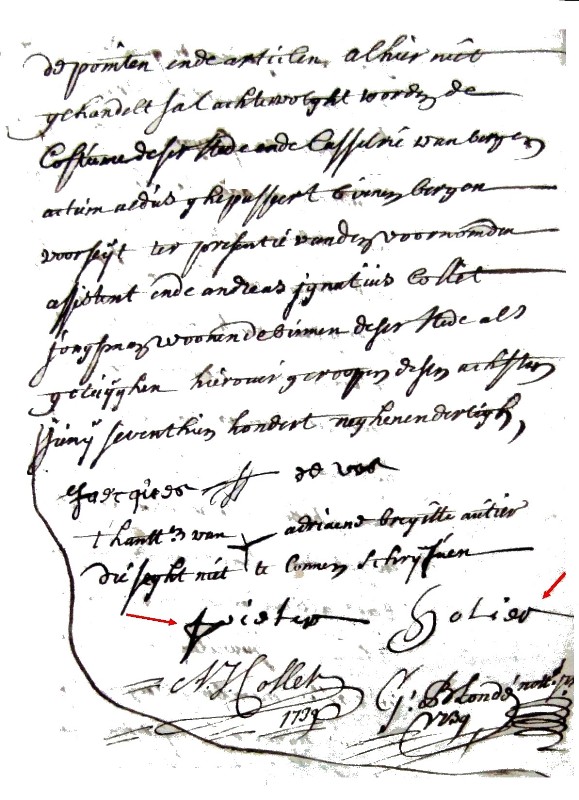 de pointen ende articlen alhier niet
ghehandelt sal achtervolght worden de
Costume deser stede ende Casselrie van bergen
actum aldus ghepasseert binnen bergen
voorseijt ter presentie vanden voornomden
assistent ende andreas jgnatius Collet
jonghman woonende binnen deser stede als
getuijghen hierover geroopen desen achsten
junij seventhien hondert neghenendertigh,
Jacques de vos
t'hantt. van adriaene brigitte autier
die seght niet te connen schrijfuen
pieter Solier
A. J. Collet
1739
C: J: Blondé nott.
1739